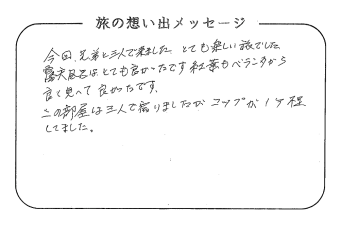 旅の想い出メッセージ
今回、兄弟と三人で来ました とても楽しい旅でした
露天風呂はとても良かったです 紅葉もベランダから
良く見へて 良かったです。
この部屋は三人で宿りましたが コップが1ケ程
してました。